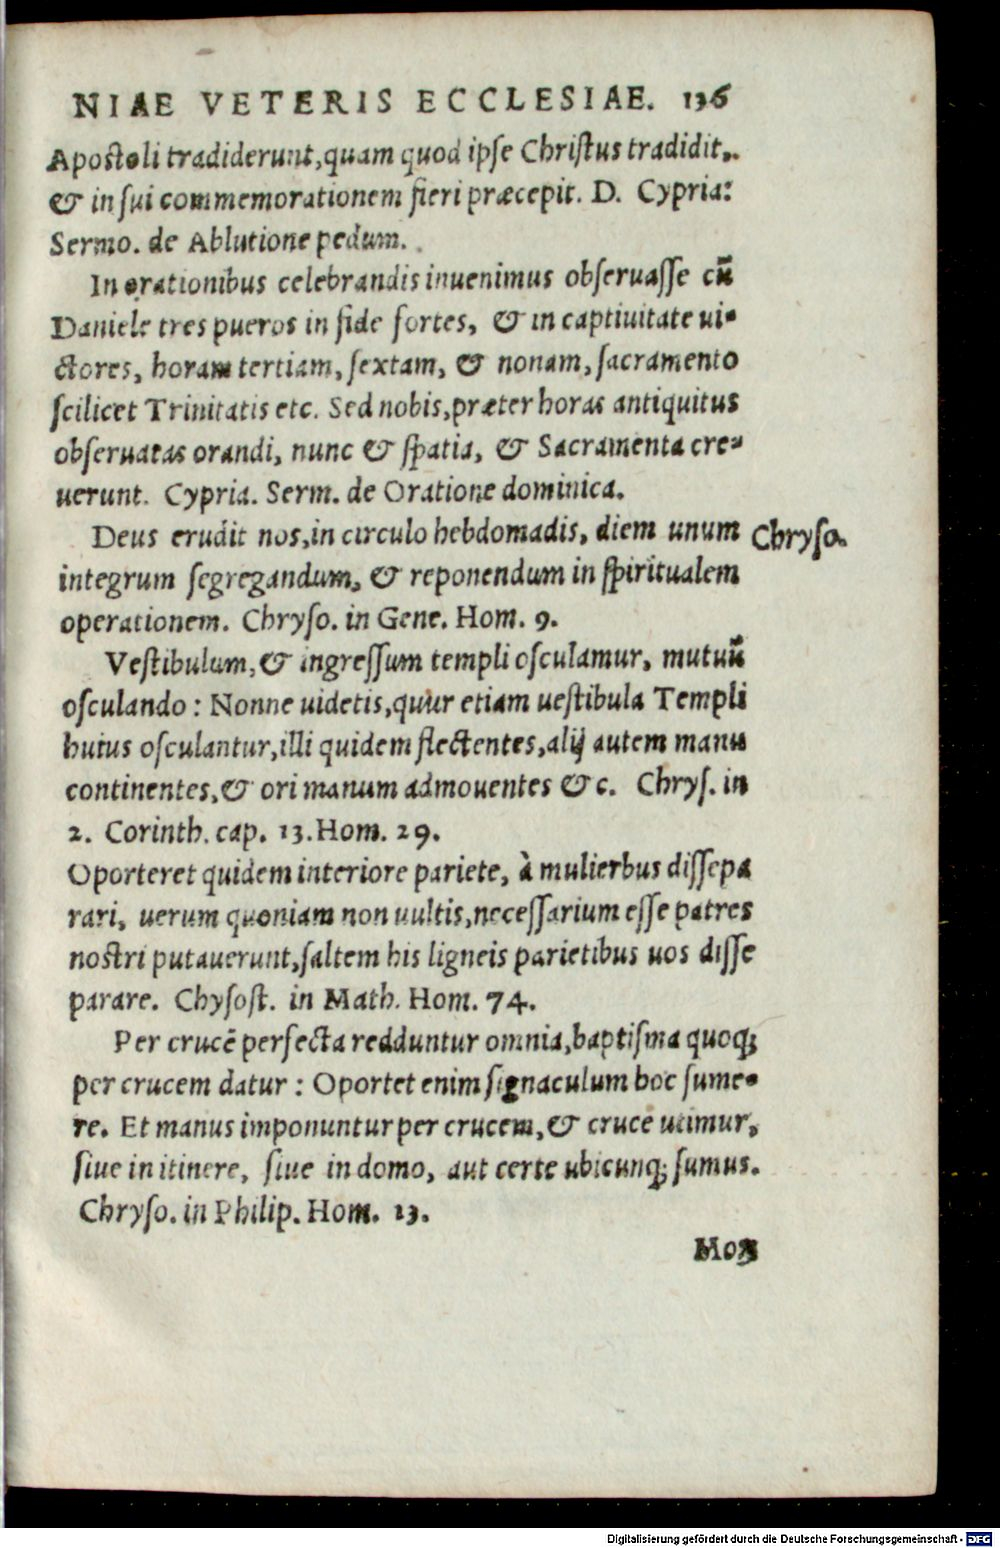 NIAE VETERIS ECCLESIAE. 136
Apostoli tradiderunt, quam quod ipſe Chriſtus tradidit,
& in ſui commemorationem fieri præcepit. D. Cypria:
Sermo. de Ablutione pedum.
In orationibus celebrandis inuenimus obſeruaſſe cū
Daniele tres pueros in fide fortes, & in captiuitate ui-
ctores, horam tertiam, ſextam, & nonam, ſacramento
ſcilicet Trinitatis etc. Sed nobis, præter horas antiquitus
obſeruatas orandi, nunc & ſpatia, & Sacramenta cre-
uerunt. Cypria. Serm. de Oratione dominica.
Deus erudit nos, in circulo hebdomadis, diem unum
Chryſo.
integrum ſegregandum, & reponendum in ſpiritualem
operationem. Chryſo. in Gene. Hom. 9.
Veſtibulum, & ingreſſum templi oſculamur, mutuū
oſculando: Nonne uidetis, quur etiam ueſtibula Templi
huius oſculantur, illi quidem flectentes, alij autem manu
continentes, & ori manum admouentes &c. Chryſ. in
2. Corinth. cap. 13. Hom. 29.
Oporteret quidem interiore pariete, à mulierbus diſſepa
rari, uerum quoniam non uultis, neceſſarium eſſe patres
noſtri putauerunt, ſaltem his ligneis parietibus uos diſſe
parare. Chyſoſt. in Math. Hom. 74.
Per crucē perfecta redduntur omnia, baptiſma quoq;
per crucem datur: Oportet enim ſignaculum hoc ſume-
re. Et manus imponuntur per crucem, & cruce utimur,
ſiue in itinere, ſiue in domo, aut certe ubicunq; ſumus.
Chryſo. in Philip. Hom. 13.
Digitalisierung gefördert durch die Deutsche Forschungsgemeinschaft - DFG